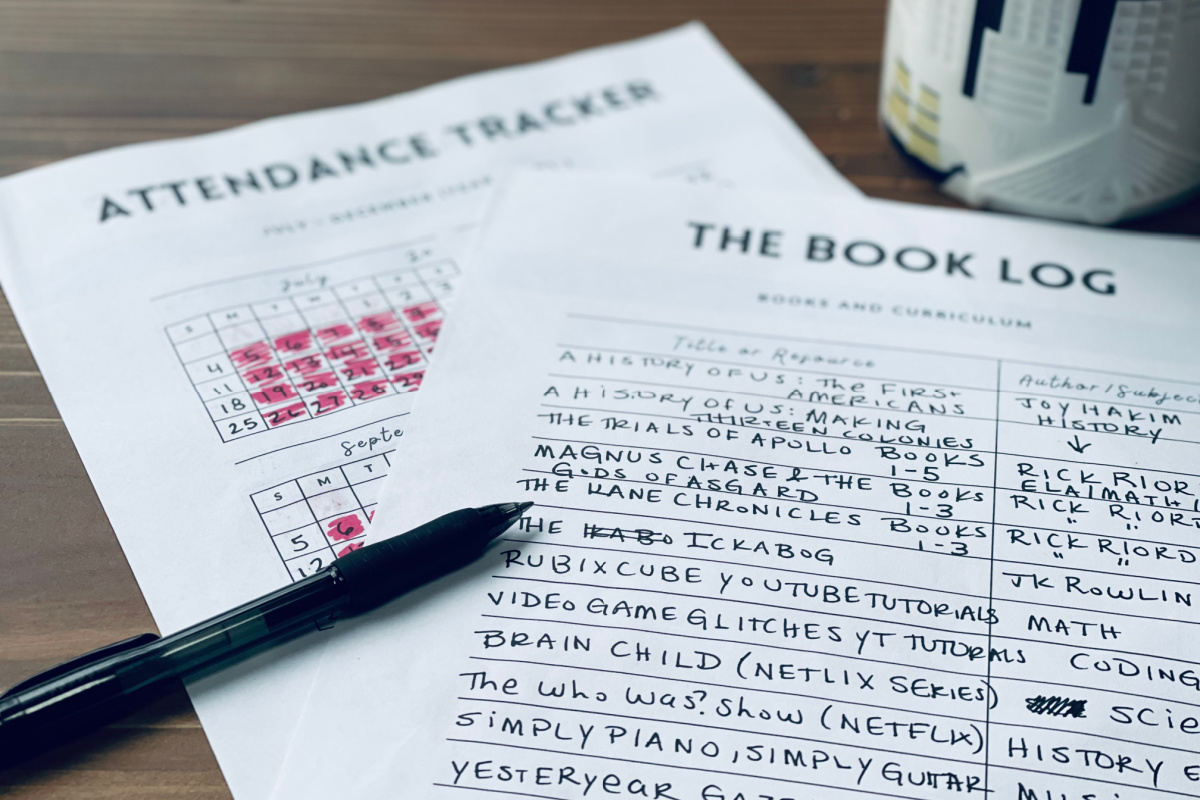 ATTENDANCE TRACKER
JULY - DECEMBER
July
S M T W T F S
1 2 3
4 5 6 7 8 9
11 12 13 14 15 16
18 19 20 21 22
25 26 27 28 29
Septe
S M T
5 6
12
THE BOOK LOG
BOOKS AND CURRICULUM
Title or Resource Author/Subject
A HISTORY OF US: The FIRST JOY HAKIM
AMERICANS HISTORY
A HISORY OF US: MAKING ↓
THIRTEEN COLONIES
THE TRIALS OF APOLLO BOOKS RICK RIOR
1-5
MAGNUS CHASE & THE BOOKS RICK RIORD
GODS OF ASGARD 1-3 " "
THE KANE CHRONICLES BOOKS RICK RIORD
1-3 " "
THE ICKABOG JK ROWLIN
RUBIX CUBE YOUTUBE TUTORIALS MATH
VIDEO GAME GLITCHES YT TUTORIALS CODING
BRAIN CHILD (NETLIX SERIES) SCIE
The Who Was? Show (NETFLIX) HISTORY E
SIMPLY PIANO, SIMPLY GUITAR MUSI
YESTERYEAR